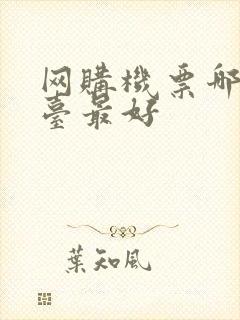 网購機票哪
臺最好
葉知風